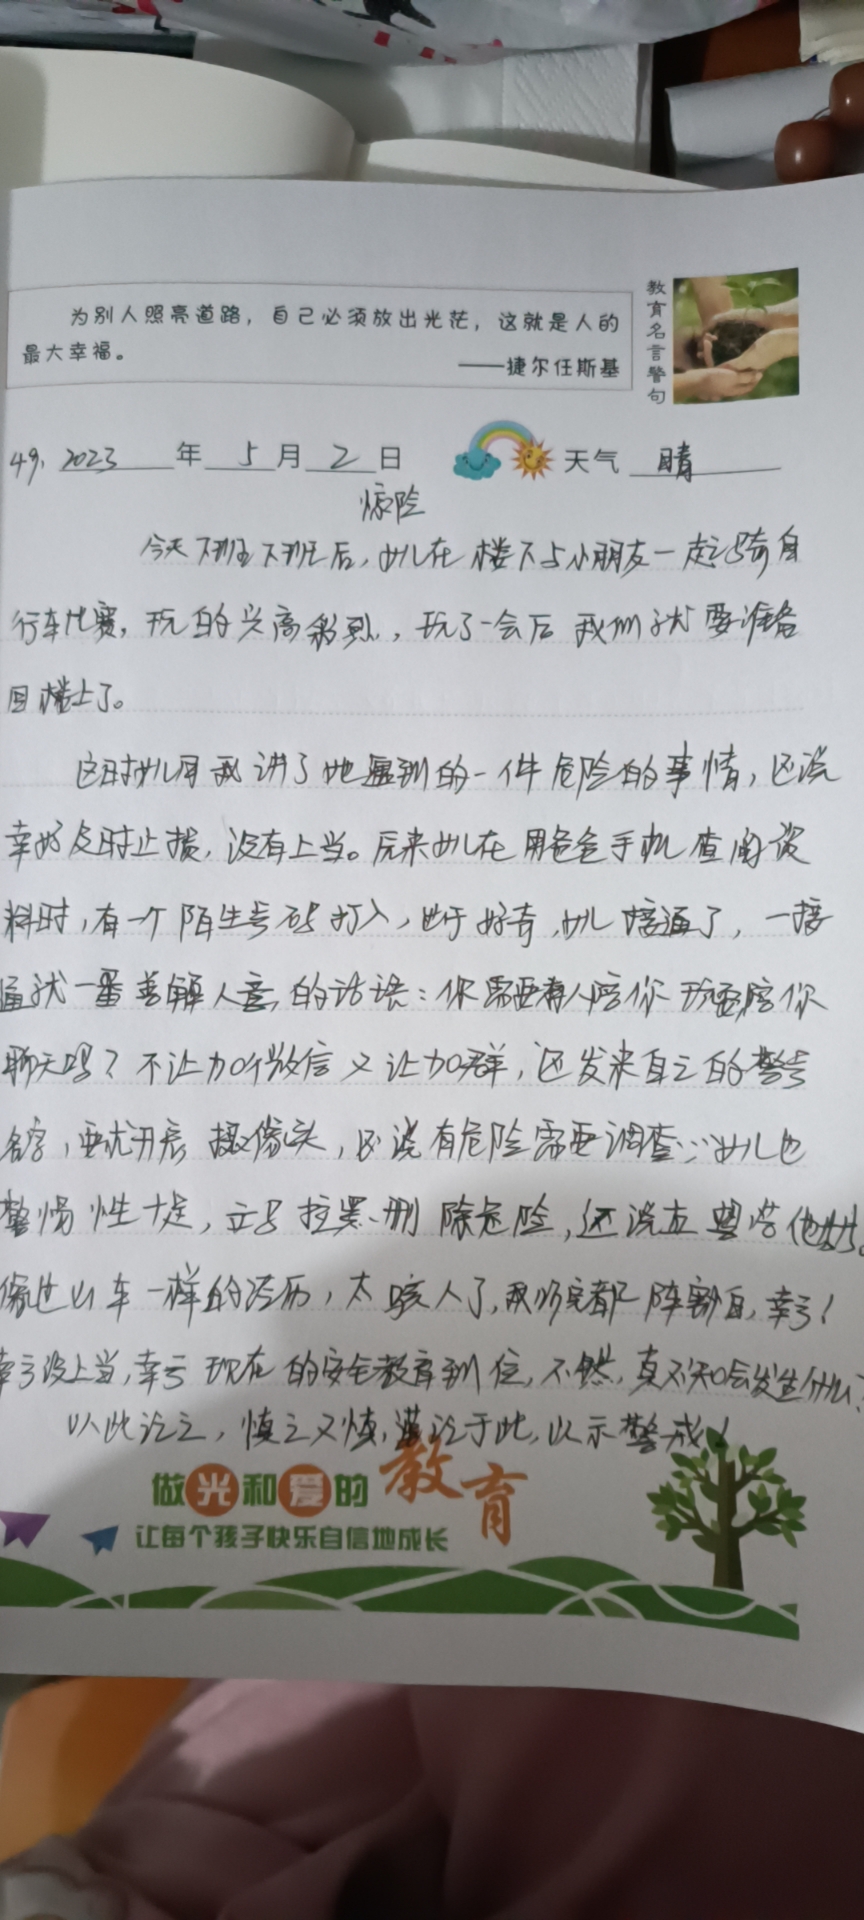 为别人照亮道路，自己必须放出光茫，这就是人的
最大幸福。
——捷尔任斯基
教育名言警句
49. 2023年5月2日 天气 晴
惊险
今天下班后，女儿在楼下与小朋友一起骑自
行车比赛，玩的兴高彩烈，玩了一会后我们就要准备
回楼上了。
这时女儿同我讲了她遇到的一件危险的事情，还说
幸好及时止损，没有上当。原来女儿在用爸爸手机查阅资
料时，有一个陌生号码打入，出于好奇，女儿接通了，一接
通就一番善解人意的话语：你需要有人陪你玩或陪你
聊天吗？不让加个微信又让加群，还发来自己的警号
名字，要求开启摄像头，还说有危险需要调查……女儿也
警惕性十足，立马拉黑、删除危险，还说在
像过山车一样的经历，太骇人了，我听完都阵割自，幸亏！
幸亏没上当，幸亏现在的安全教育到位，不然，真不知会发生什么？
以此论之，慎之又慎，谨记于此，以示警戒！
做光和爱的教育
让每个孩子快乐自信地成长